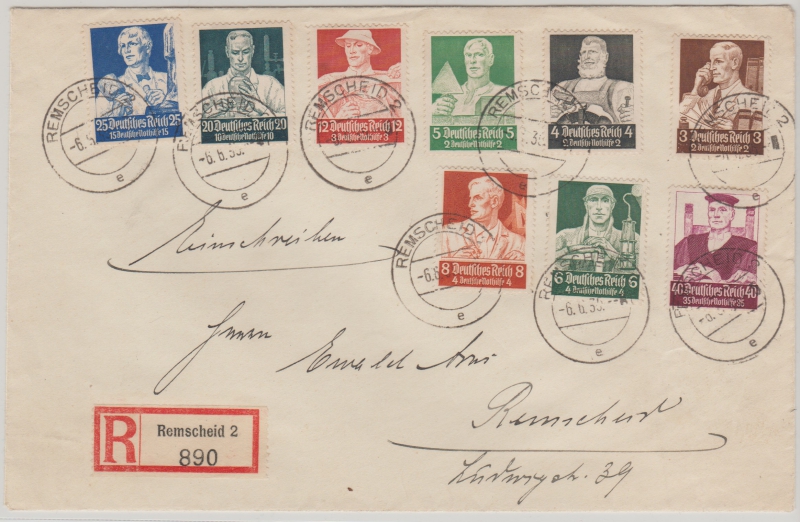 25 Deutsches Reich 25
15 Deutsche Nothilfe 15
20 Deutsches Reich 20
10 Deutsche Nothilfe 10
12 Deutsches Reich 12
3 Deutsche Nothilfe 3
5 Deutsches Reich 5
2 Deutsche Nothilfe 2
4 Deutsches Reich 4
2 Deutsche Nothilfe 2
3 Deutsches Reich 3
2 Deutsche Nothilfe 2
REMSCHEID
e
-6.6.35.
e
REMSCHEID 2
e
REMSCHEID
e
2
e
8 Deutsches Reich 8
4 Deutsche Nothilfe 4
6 Deutsches Reich 6
4 Deutsche Nothilfe 4
40 Deutsches Reich 40
35 Deutsche Nothilfe 35
REMSCHEID
e
-6.6.35.
e
e
Einschreiben
Herrn
Ewald
Remscheid
Ludwigstr. 39
R Remscheid 2
890